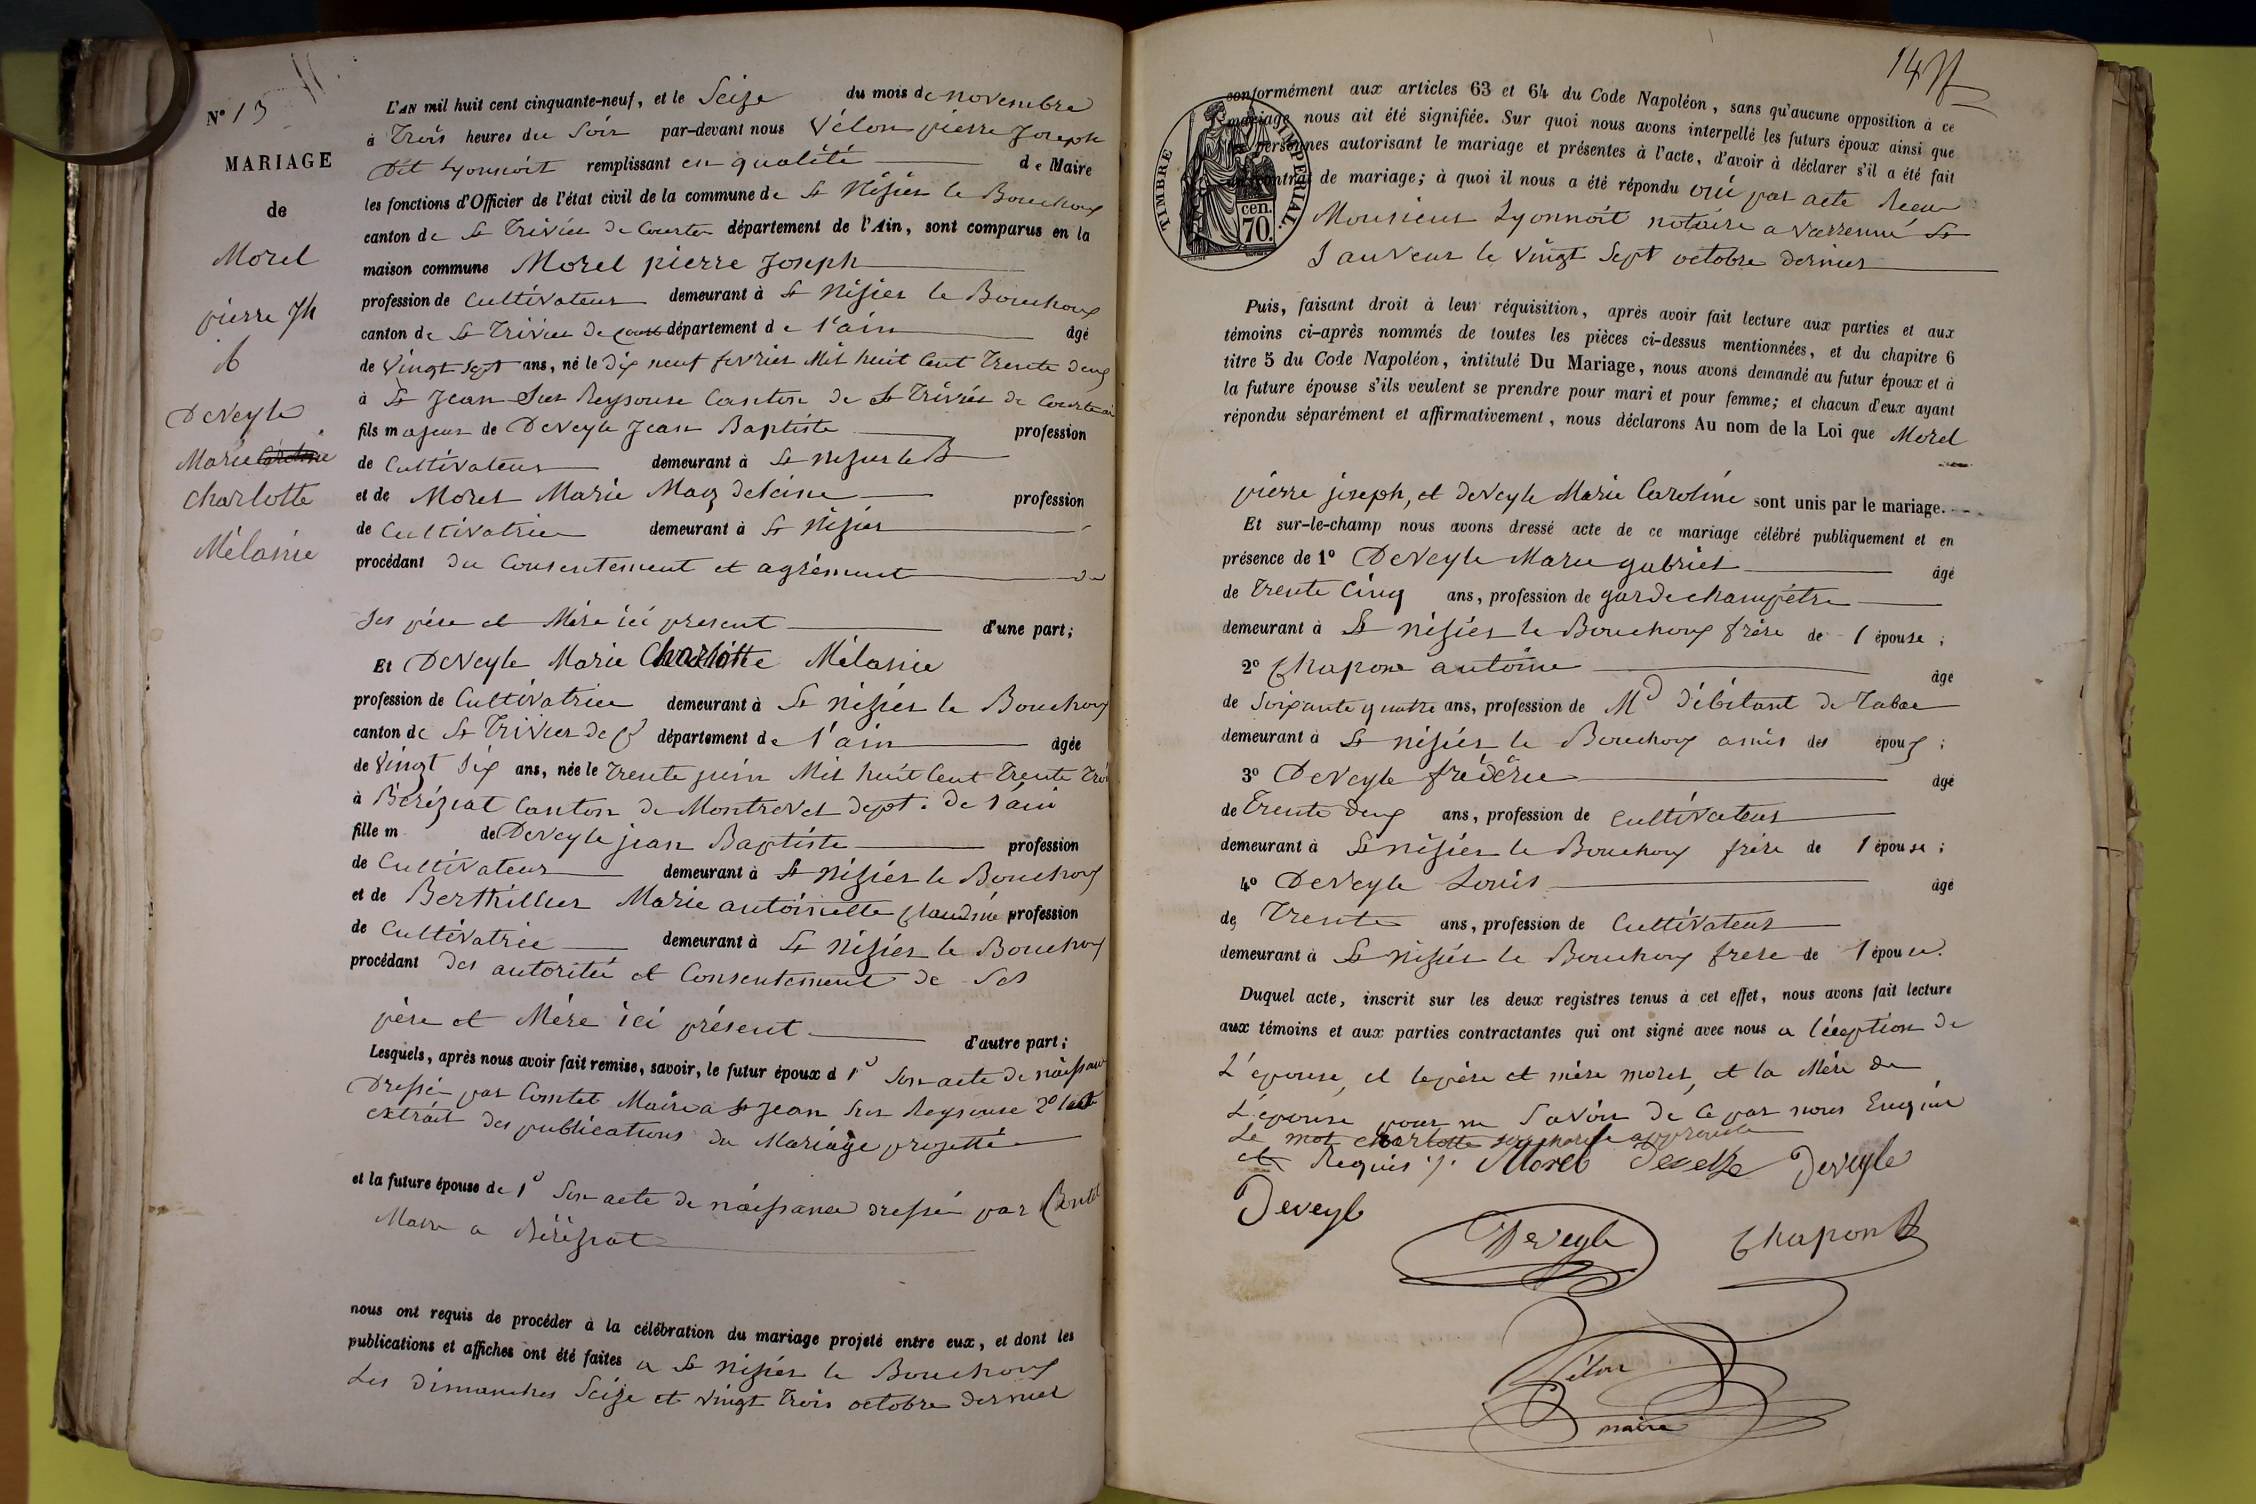 N° 13
MARIAGE
de
Morel
pierre Jh
&
Deveyle
Marie Caroline
charlotte
Mélanie
L'AN mil huit cent cinquante-neuf, et le Seize du mois de novembre
à Trois heures du Soir par-devant nous Vélon pierre Joseph
Dit Lyonnoit remplissant en qualité de Maire
les fonctions d'Officier de l'état civil de la commune de St Nizier le Bouchoux
canton de St Trivier de Courtes département de l'Ain, sont comparus en la
maison commune Morel pierre Joseph
profession de Cultivateur demeurant à St Nizier le Bouchoux
canton de St Trivier de Court département de l'ain âgé
de Vingt Sept ans, né le Dix neuf fevrier Mil huit Cent Trente deux
à St Jean Sur Reysouse Canton de St Trivier de Courtes
fils majeur de Deveyle Jean Baptiste profession
de Cultivateur demeurant à St Nizier le B
et de Morel Marie Magdeleine profession
de Cultivatrice demeurant à St Nizier
procédant du Consentement et agrément de
Ses père et Mère ici present d'une part;
Et Deveyle Marie Charlotte Mélanie
profession de Cultivatrice demeurant à St Nizier le Bouchoux
canton de St Trivier de C département de l'ain âgée
de Vingt Six ans, née le Trente juin Mil huit Cent Trente Trois
à Béréziat Canton de Montrevel dept. de l'ain
fille m de Deveyle jean Baptiste profession
de Cultivateur demeurant à St Nizier le Bouchoux
et de Berthillier Marie antoinette Claudine profession
de Cultivatrice demeurant à St Nizier le Bouchoux
procédant des autorité et Consentement de Ses
père et Mère ici présent d'autre part;
Lesquels, après nous avoir fait remise, savoir, le futur époux d 1° Son acte de naissance
Dressé par Comtet Maire a St Jean Sur Reysouse 2°
extrait des publications du Mariage projetté
et la future épouse de 1° Son acte de naissance dressé par
Maire a Béréziat
nous ont requis de procéder à la célébration du mariage projeté entre eux, et dont les
publications et affiches ont été faites a St Nizier le Bouchoux
Les dimanches Seize et vingt Trois octobre dernier
14
conformément aux articles 63 et 64 du Code Napoléon, sans qu'aucune opposition à ce
mariage nous ait été signifiée. Sur quoi nous avons interpellé les futurs époux ainsi que
les personnes autorisant le mariage et présentes à l'acte, d'avoir à déclarer s'il a été fait
un contrat de mariage; à quoi il nous a été répondu oui par acte Recu
Monsieur Lyonnoit notaire a Varenne St
Sauveur le Vingt Sept octobre dernier
TIMBRE IMPÉRIAL.
cen.
70.
Puis, faisant droit à leur réquisition, après avoir fait lecture aux parties et aux
témoins ci-après nommés de toutes les pièces ci-dessus mentionnées, et du chapitre 6
titre 5 du Code Napoléon, intitulé Du Mariage, nous avons demandé au futur époux et à
la future épouse s'ils veulent se prendre pour mari et pour femme; et chacun d'eux ayant
répondu séparément et affirmativement, nous déclarons Au nom de la Loi que Morel
pierre joseph, et deveyle Marie Caroline sont unis par le mariage.
Et sur-le-champ nous avons dressé acte de ce mariage célébré publiquement et en
présence de 1° Deveyle Marie gabriel âgé
de Trente Cinq ans, profession de garde champêtre
demeurant à St nizier le Bouchoux frère de l'épouse;
2° Chapon antoine âgé
de Soixante quatre ans, profession de Md débitant de Tabac
demeurant à St nizier le Bouchoux amis des époux;
3° Deveyle frédéric âgé
de Trente deux ans, profession de Cultivateur
demeurant à St nizier le Bouchoux frère de l'épouse;
4° Deveyle Louis âgé
de Trente ans, profession de Cultivateur
demeurant à St Nizier le Bouchoux frere de l'épouse.
Duquel acte, inscrit sur les deux registres tenus à cet effet, nous avons fait lecture
aux témoins et aux parties contractantes qui ont signé avec nous a l'éception de
L'épouse, et le père et mère morel, et la Mère de
L'épouse pour ne Savoir de Ce par nous Enquis
Le mot charlotte approuvé
et Requis ./. Morel Deveyle Deveyle
Deveyle
Deveyle Chapon
Vélon
maire